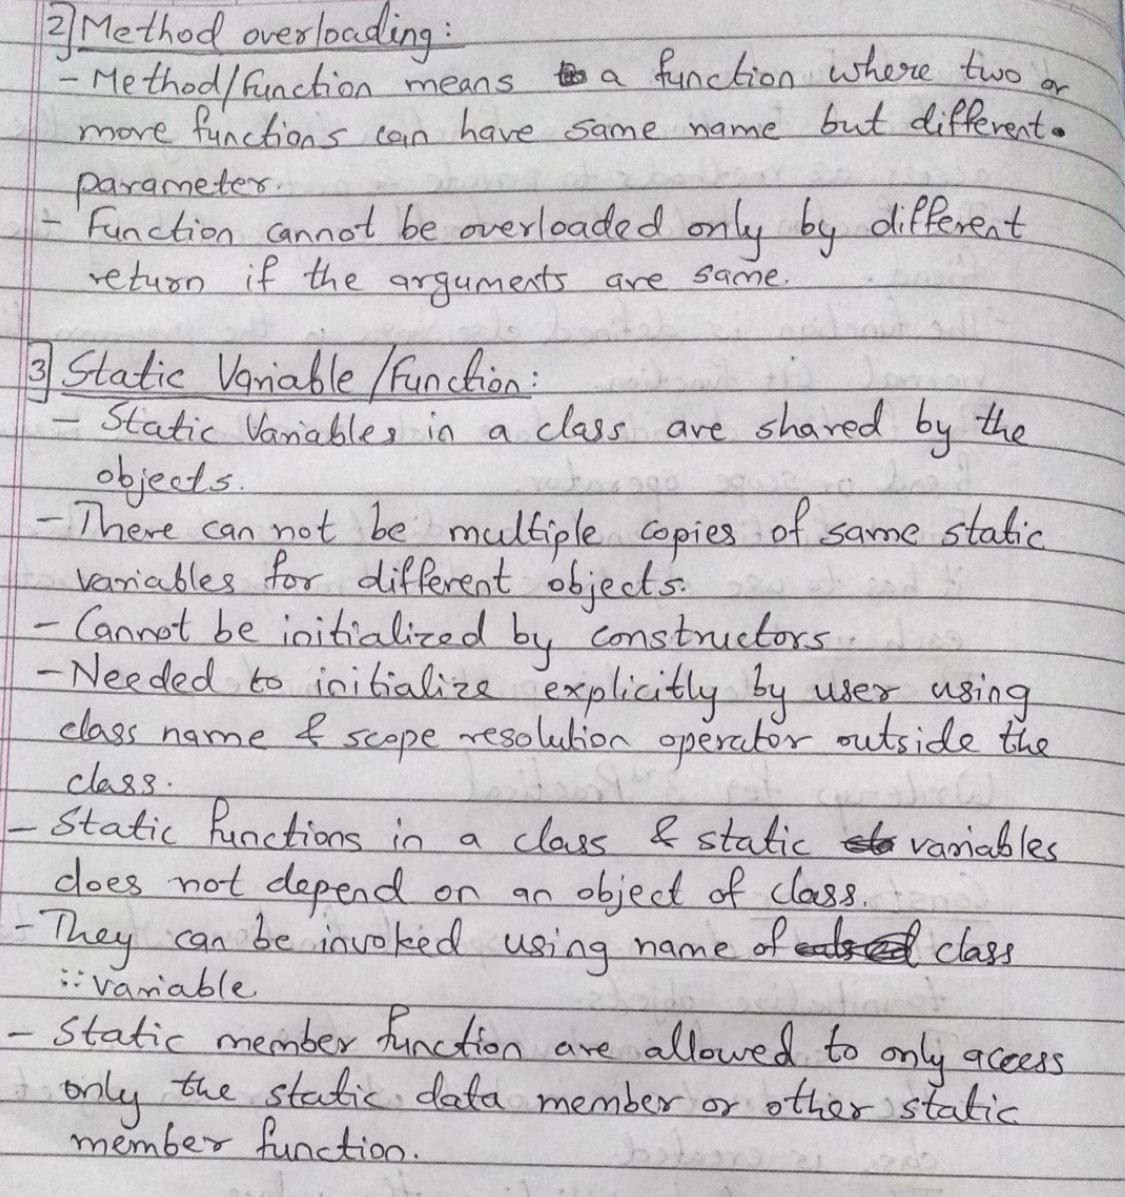 2] Method overloading:
- Method/Function means a function where two or
more functions can have same name but different
parameter.
- Function cannot be overloaded only by different
return if the arguments are same.
3] Static Variable/Function:
- Static Variables in a class are shared by the
objects.
- There can not be multiple copies of same static
variables for different objects.
- Cannot be initialized by constructors.
- Needed to initialize explicitly by user using
class name & scope resolution operator outside the
class.
- Static functions in a class & static variables
does not depend on an object of class.
- They can be invoked using name of class
:: variable
- Static member function are allowed to only access
only the static data member or other static
member function.